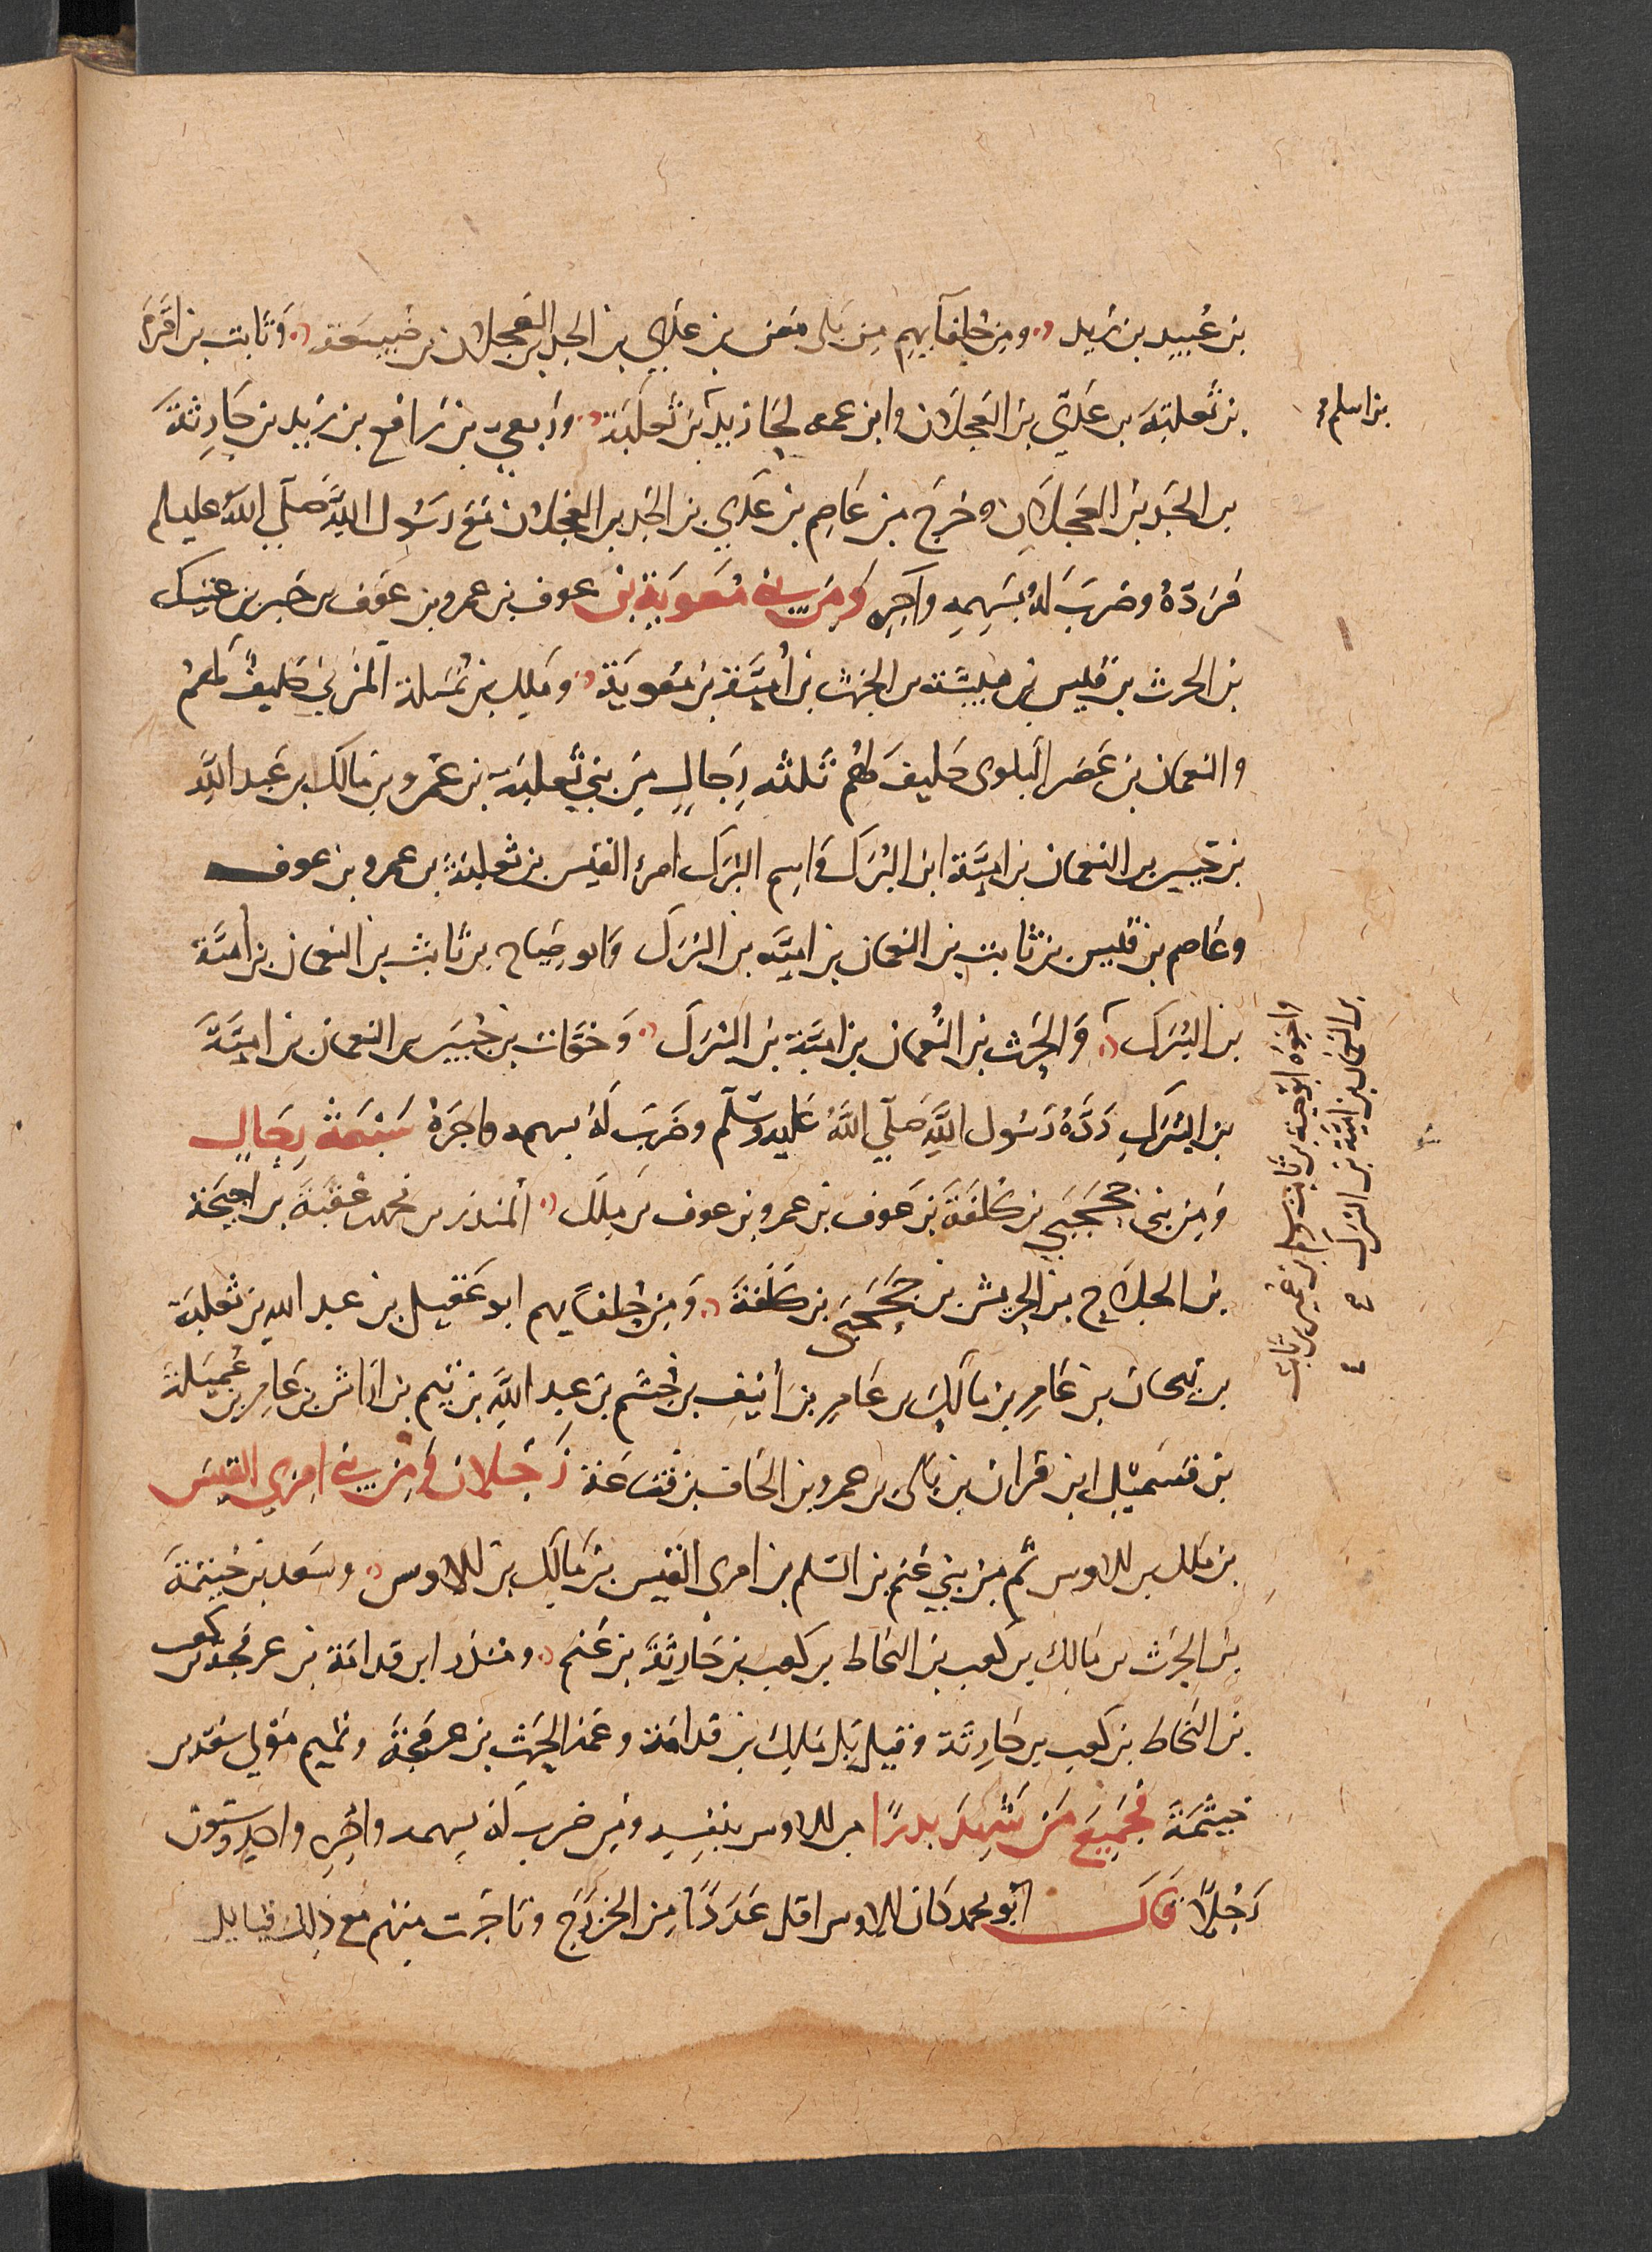 بن عُبيد بن زيد ومن حلفآيهم من بَلى مَعن بن عدي بن الجد بن العجلان بن ضُبيعَة وَثابت بن اقرَم
بن ثعلبَة بن عَدي بن العَجلان وابن عمه لحا زيد بن ثعلبَة وربعي بن رافع بن زيد بن حَارِثةَ
بن الجَد بن العَجلان وخرَج من عَاصِم بن عَدي بن الجَد بن العَجلان مَع رسُول اللهِ صَلي اللهُ عليه وسلم
فرَدّهُ وضرَبَ لهُ بسَهمِه واَجرِه وَمن بنى مُعوية بن عوف بن عمرو بن عَوف بن جبر بن عتيك
بن الحرث بن قيس بن هيشَة بن الحرث بن أُميَّة بن مُعوية وملك بن نُميلة المُزني حَليفٌ لهُم
والنعمان بن عَصَر البلوى حَليفَ لهُم ثلثه رِجالٍ مِن بني ثعلبَة بن عَمْرو بن مالك بن عَبد اللهِ
بن جبير بن النعمان بن اميَّة ابن البُرَك وَاسم البُرَك امرئ القيس بن ثعلبَة بن عمرو بن عوف
وعَاصم بن قيس بن ثابت بن النعمان بن اميَّه بن البُرَك وَابو ضِياح بن ثابت بن النعمان بن اميَّة
بن البُرَك وَالحَرث بن النُّعمان بن اميَّة بن البُرَك وَخوَّات بن جُبَير بن النعمان بن اميَّةَ
بن البُرَكِ رَدَّهُ رَسُول اللهِ صَلّي اللهُ عَليه وسَلّم وضَرَبَ لهُ بسهمه واجرَهْ سَبْعَة رِجَالٍ
وَمن بنى جَحجَبي بن كُلفَةَ بن عَوف بن عمرو بن عوف بن ملك المنذر بن محمد بن عُقبَة بن اُحيحَة
بن الجلاح بن الحريش بن جَحجَبَى بن كلفَةَ وَمن حُلفآيهم ابو عَقيل بن عبد الله بن ثعلبَة
بن بيحان بن عَامِر بن مَالكِ بن عَامر بن اُنَيف بن جُشم بن عبد اللهِ بن تيم بن اراش بن عَامر بن عُميَلة
بن قسميل ابن فران بن بلى بن عمرو بن الحاف بن قضاعَة رَجُلان وَمن بنى امرِي القيس
بن ملك بن الاوس ثم من بني غَنم بن السَلم بن امرى القيس بن مَالك بن الاوس وسَعد بن خيثمَة
بن الحَرث بن مَالك بن كَعب بن النحاط بن كعب بن حَارثَة بن غَنم ومنذر ابن قدامَة بن عرفجة بن كعب
بن النحاط بن كعب بن حَارِثَة وقيل بَل مَلك بن قدامَة وعَمه الحَرث بن عرفجَة وتميم مَولى سَعد بن
خيثمَة فجَمِيعَ مَن شَهِدَ بدرًا من الاوس بنفسِه ومَن ضرب لهُ بسهمه واَجرِه واحِد وستون
رَجُلاً قال ابو محمد كان الاوس اقل عَدَدًا من الخزرَج وتاخرت منهم مع ذلك قبايل
بن اسلم
واخوه ابو حبة بن ثابت
بن النعمان بن اميَّة بن البُرَك